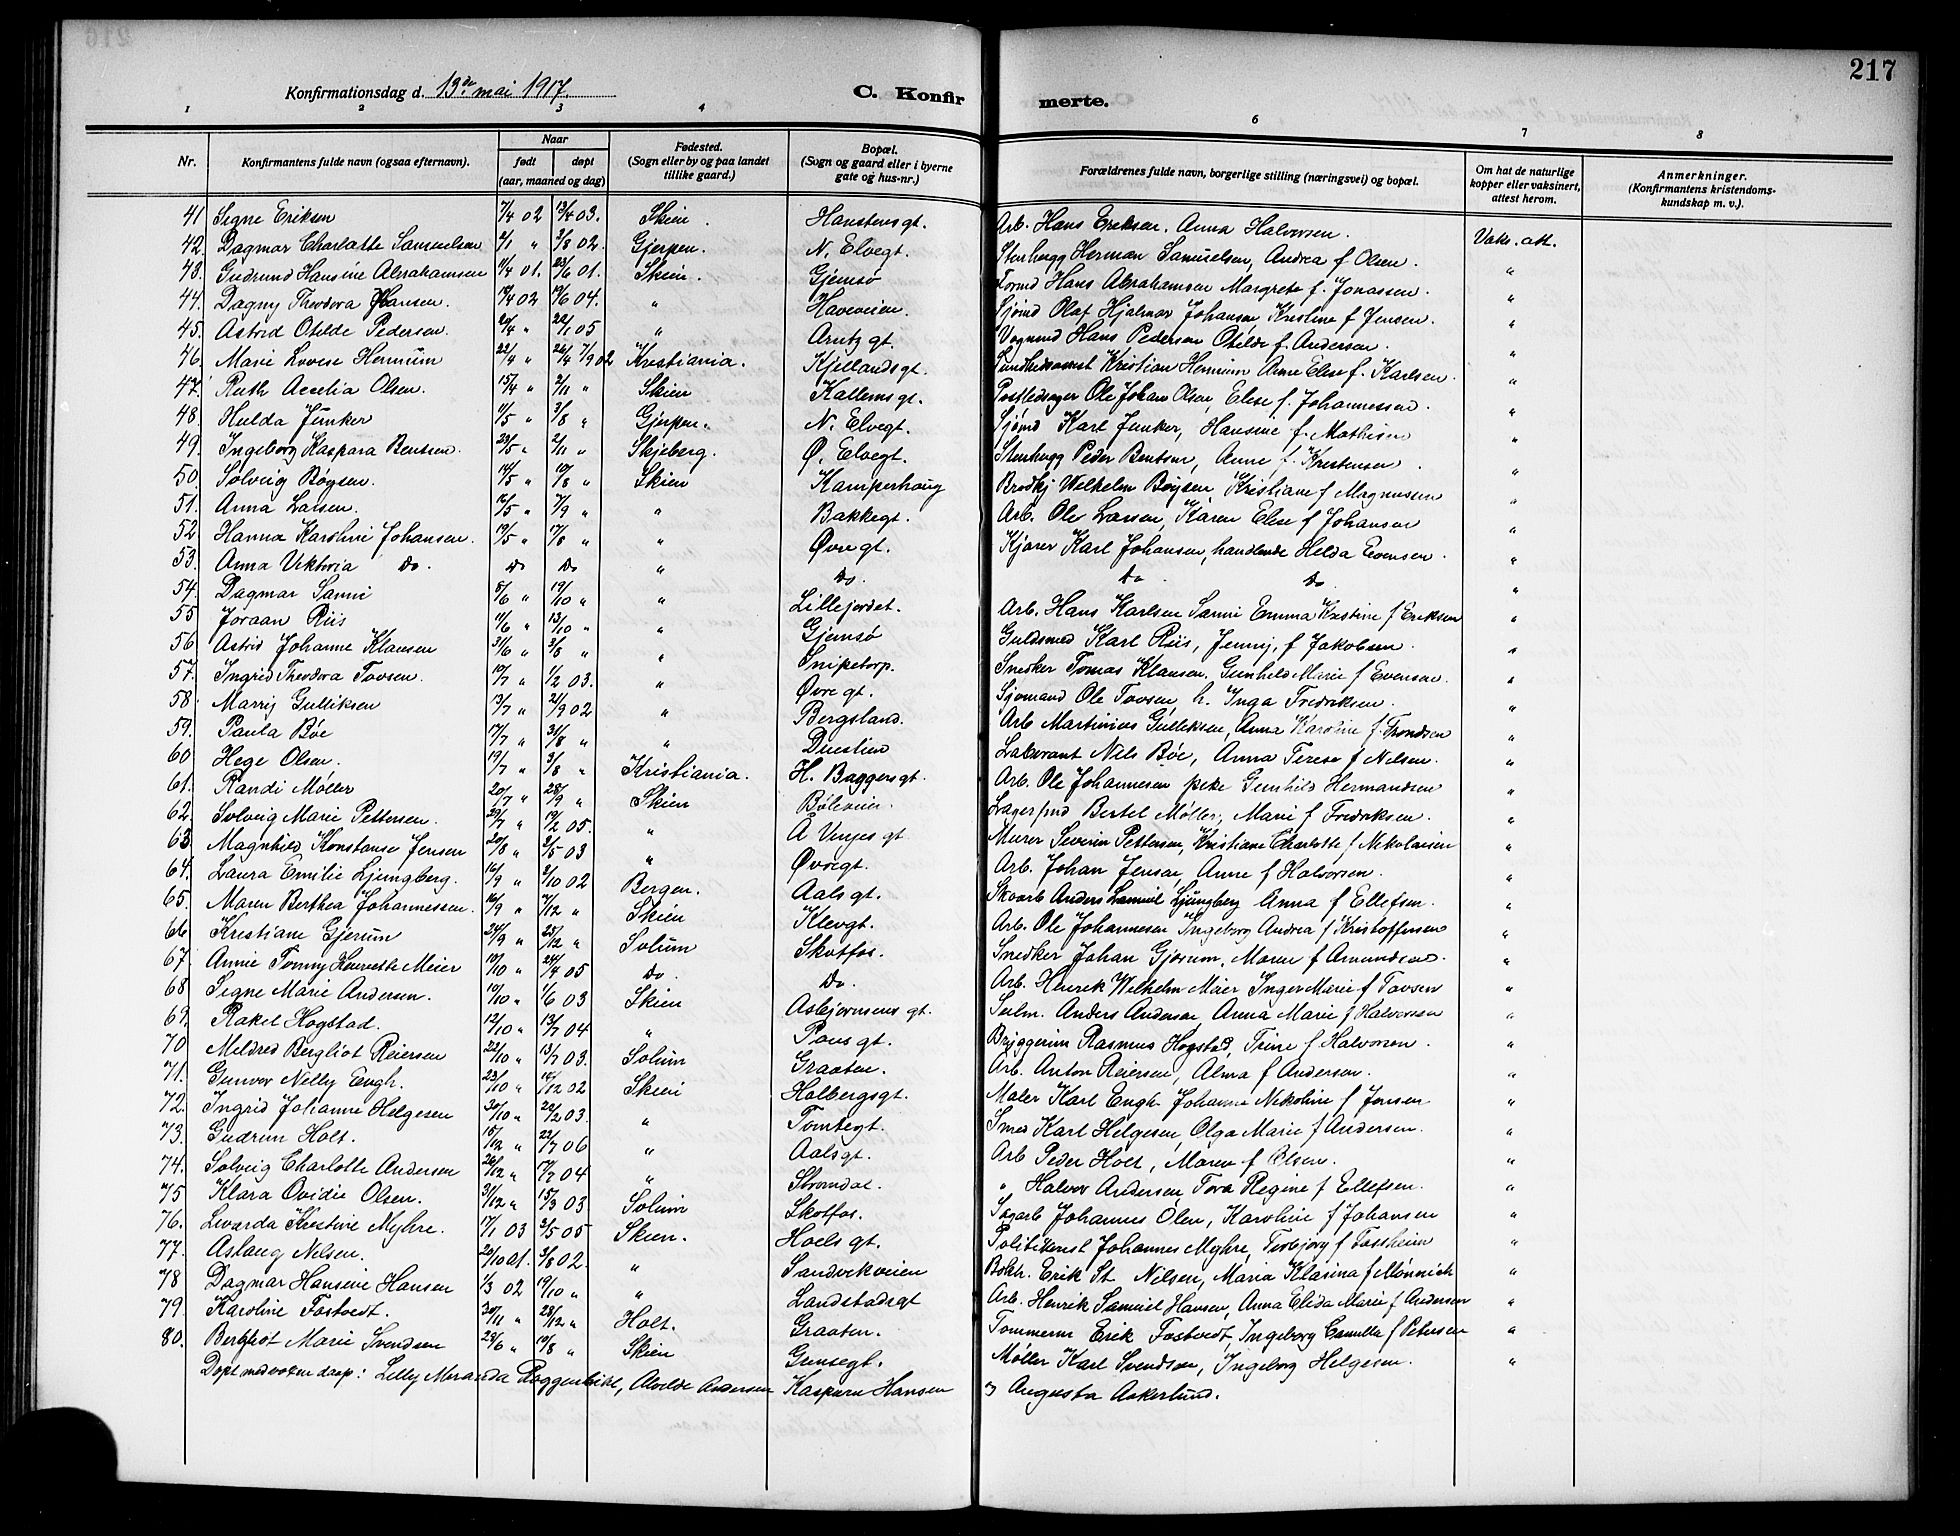 217
Konfirmationsdag d. 13de mai 1917.
C. Konfirmerte.
1 2 3 4 5 6 7 8
Nr. Konfirmantens fulde navn (ogsaa efternavn). Naar født døpt (aar, maaned og dag) Fødested. (Sogn eller by og paa landet tillike gaard.) Bopæl. (Sogn og gaard eller i byerne gate og hus-nr.) Forældrenes fulde navn, borgerlige stilling (næringsvei) og bopæl. Om hat de naturlige kopper eller vaksinert, attest herom. Anmerkninger. (Konfirmantens kristendomskundskap m. v.).
41 Signe Eriksen 7/4 02 13/4 03. Skien. Hanstensgt. Arb. Hans Eriksen. Anna Halvorsen. Vaks. att.
42. Dagmar Charlotte Samuelsen 2/1 " 3/8 02. Gjerpen. N. Elvegt. Stenhugg Herman Samuelsen, Andrea f Olsen. "
43. Gudrund Hansine Abrahamsen 11/4 01. 23/6 01. Skien. Gjemsø Formd Hans Abrahamsen Margrete f. Jonassen. "
44. Dagny Theodora Hansen. 19/4 02 19/6 04. " Haveveien. Sjømd Olaf Hjalmar Johansen Kristine f Jensen. "
45. Astrid Otilde Pedersen. 20/4 " 22/1 05 " Arntz gt. Vognmd Hans Pedersen Otilde f. Andersen. "
46. Marie Lovise Hermum 22/4 " 26/4 7/9 02 Kristiania. Kjellandsgt. Kristian Hermum Anne Elise f. Karlsen. "
47. Ruth Acelia Olsen. 15/4 " 2/11 " Skien Kallemsgt. Postledsager Ole Johan Olsen, Elise f. Johannessen. "
48. Hulda Junker 11/5 " 3/8 " Gjerpen. N. Elvegt. Sjømd Karl Junker, Hansine f. Mathisen "
49. Ingeborg Kaspara Bentsen. 29/5 " 2/11 " Skjeberg. Ø. Elvegt. Stenhugg Peder Bentsen, Anne f. Kristensen. "
50. Solveig Bøgsen. 14/5 " 10/8 " Skien Kamperhaug Brødkj Wilhelm Bøysen, Kristiane f Magnusen "
51. Anna Larsen. 16/5 " 7/9 " " Bakkegt. Arb. Ole Larsen, Karen Elise f Johansen "
52 Hanna Karoline Johansen. 19/5 " 17/8 " " Øvregt. Kjører Karl Johansen, handlende Helda Evensen. "
53. Anna Viktoria Do. Do Do " Do. Do. Do "
54. Dagmar Sanni 8/6 " 19/10 " " Lillejordet. Arb. Hans Karlsen Sanni Emma Kristine f Eriksen "
55 Joraan Riis 11/6 " 13/10 " " Gjemsø Guldsmed Karl Riis, Jenny, f Jakobsen. "
56 Astrid Johanne Klausen 21/6 " 3/8 " " Snipetorp. Snekker Tomas Klausen, Gunhild Marie f Evensen. "
57. Ingrid Theodora Tovsen. 19/7 " 1/2 03. " Øvregt. Sjømand Ole Tovsen, h. Inga Fredriksen. "
58 Marry Gulliksen 13/7 " 21/9 02 " Bergsland. Arb Martinius Gulliksen, Anna Karoline f. Trondsen "
59. Paula Bøe 17/7 " 31/8 " " Duestien Laborant Nils Bøe, Anna Terese f Nilsen. "
60 Hege Olsen. 19/7 " 3/8 " Kristiania. H. Baggersgt. Arb. Ole Johannesen pike Gunhild Hermandsen "
61. Randi Møller 20/7 " 28/9 " Skien Bøleveien. Lagerfmd Bertel Møller, Marie f Fredriksen. "
62. Solveig Marie Pettersen. 29/7 " 19/2 05. " A Vinjes gt Murer Severin Pettersen, Kristiane Charlotte f Nikolaisen "
63 Magnhild Konstanse Jensen 20/8 " 2/5 03 " Øvregt. Arb. Johan Jensen, Anne f Halvorsen. "
64. Laura Emilie Ljungberg. 16/9 " 2/10 02 Bergen. Aalsgt. Skoarb Anders Samuel Ljungberg Anna f Ellefsen. "
65. Maren Berthea Johannessen. 16/9 " 7/12 " Skien Klevgt. Arb. Ole Johannesen Ingeborg Andrea f Kristoffersen "
66 Kristiane Gjerum 24/9 " 25/12 " Solum Skotfos. Snedker Johan Gjerum, Maren f Amundsen. "
67. Annie Tonny Henriette Meier 10/10 " 24/4 05 Do. Do. Arb. Henrik Wilhelm Maier Inger Marie f Tovsen "
68 Signe Marie Andersen. 10/10 " 1/6 03 Skien Asbjørnsens gt. Seilm. Anders Andersen, Anna Marie f Halvorsen "
69. Rakel Hogstad. 12/10 " 13/7 04 " Pausgt. Bryggerim Rasmus Hogstad, Trine f Halvorsen. "
70 Mildred Bergliot Reiersen 22/10 " 13/7 03. Solum Graaten. Arb. Anton Reiersen, Alma f Andersen. "
71. Gunvor Nelly Engh. 23/10 " 16/12 02 Skien Holbergsgt. Maler Karl Engh Johanne Nikoline f Jensen "
72. Ingrid Johanne Helgesen 30/10 " 29/2 03. " Tomtegt. Smed Karl Helgesen, Olga Marie f Andersen. "
73. Gudrun Holt. 15/12 " 22/7 06 " Aalsgt. Arb Peder Holt, Maren f Olsen. "
74. Solveig Charlotte Andersen 26/12 " 17/7 04 " Strømdal. " Halvor Andersen, Tora Regine f Ellefsen. "
75 Klara Ovidie Olsen. 31/12 " 15/3 03 Solum Skotfos. Sagarb Johannes Olsen, Karoline f Johansen "
76. Levarda Kristine Myhre. 17/1 03 3/5 05 Skien. Hoelsgt. Politikonst Johannes Myhre, Torbjørg f Fossheim "
77. Aslaug Nilsen. 20/10 01. 3/8 02. " Sandvikveien Bokh. Erik St Nilsen, Maria Klasina f Mønnich "
78 Dagmar Hansine Hansen 1/3 02 19/10 " " Landstadsgt Arb. Henrik Samuel Hansen, Anna Elida Marie f Andersen "
79. Karoline Fostvedt. 30/11 " 28/12 " Holt. Graaten. Tømmerm Erik Fostvedt, Ingeborg Camilla f Petersen "
80. Bergliot Marie Svendsen 23/6 " 19/8 " Skien Gunsegt. Møller Karl Svendsen, Ingeborg Helgesen. "
Døpt med voksen daap: Lilly Miranda Roggenbikl, Alvilde Andersen Kaspara Hansen og Augusta Aakerlund.